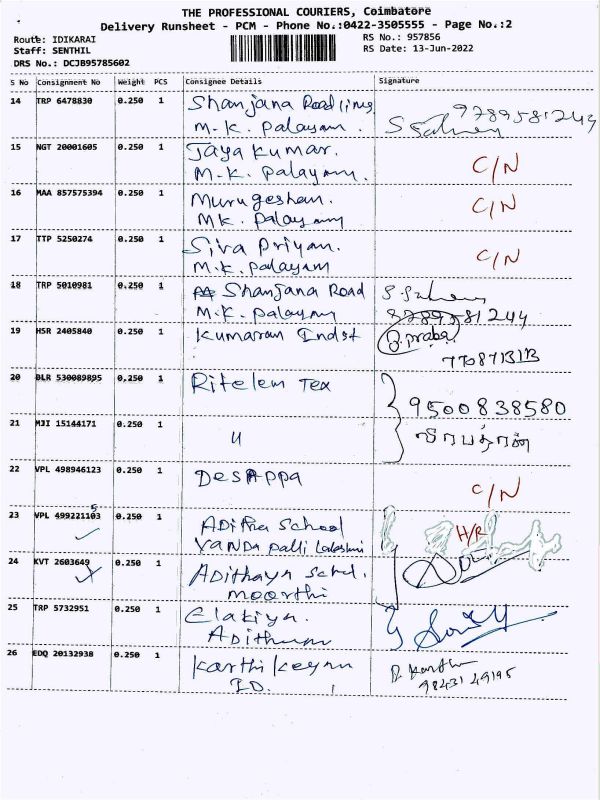 THE PROFESSIONAL COURIERS, Coimbatore
Delivery Runsheet - PCM - Phone No.:0422-3505555 - Page No.:2
Route: IDIKARAI
RS No.: 957856
Staff: SENTHIL
RS Date: 13-Jun-2022
DRS No.: DCJB95785602
S No Consignment No Weight PCS Consignee Details Signature
14 TRP 6478830 0.250 1 Shanjana Roadlines 9789581244
M.K. Palayam.
15 NGT 20001605 0.250 1 Jaya Kumar. C/N
M.K. Palayam.
16 MAA 857575394 0.250 1 Murugeshan. C/N
MK. Palayam
17 TTP 5250274 0.250 1 Siva Priyan. C/N
M.K. Palayam
18 TRP 5010981 0.250 1 Shanjana Road
M.K. Palayam 9789581244
19 HSR 2405840 0.250 1 Kumaran Indst
20 BLR 530089895 0.250 1 Ritelem Tex 9500838580
21 MJI 15144171 0.250 1 u வீரபத்ரன்
22 VPL 498946123 0.250 1 Desappa C/N
23 VPL 499221103 0.250 1 Aditha School H/R
24 KVT 2603649 0.250 1 Adithaya Schl.
moorthi
25 TRP 5732951 0.250 1 Elakiya
26 EDQ 20132938 0.250 1 Karthikeyan
I.D. 98431 49195